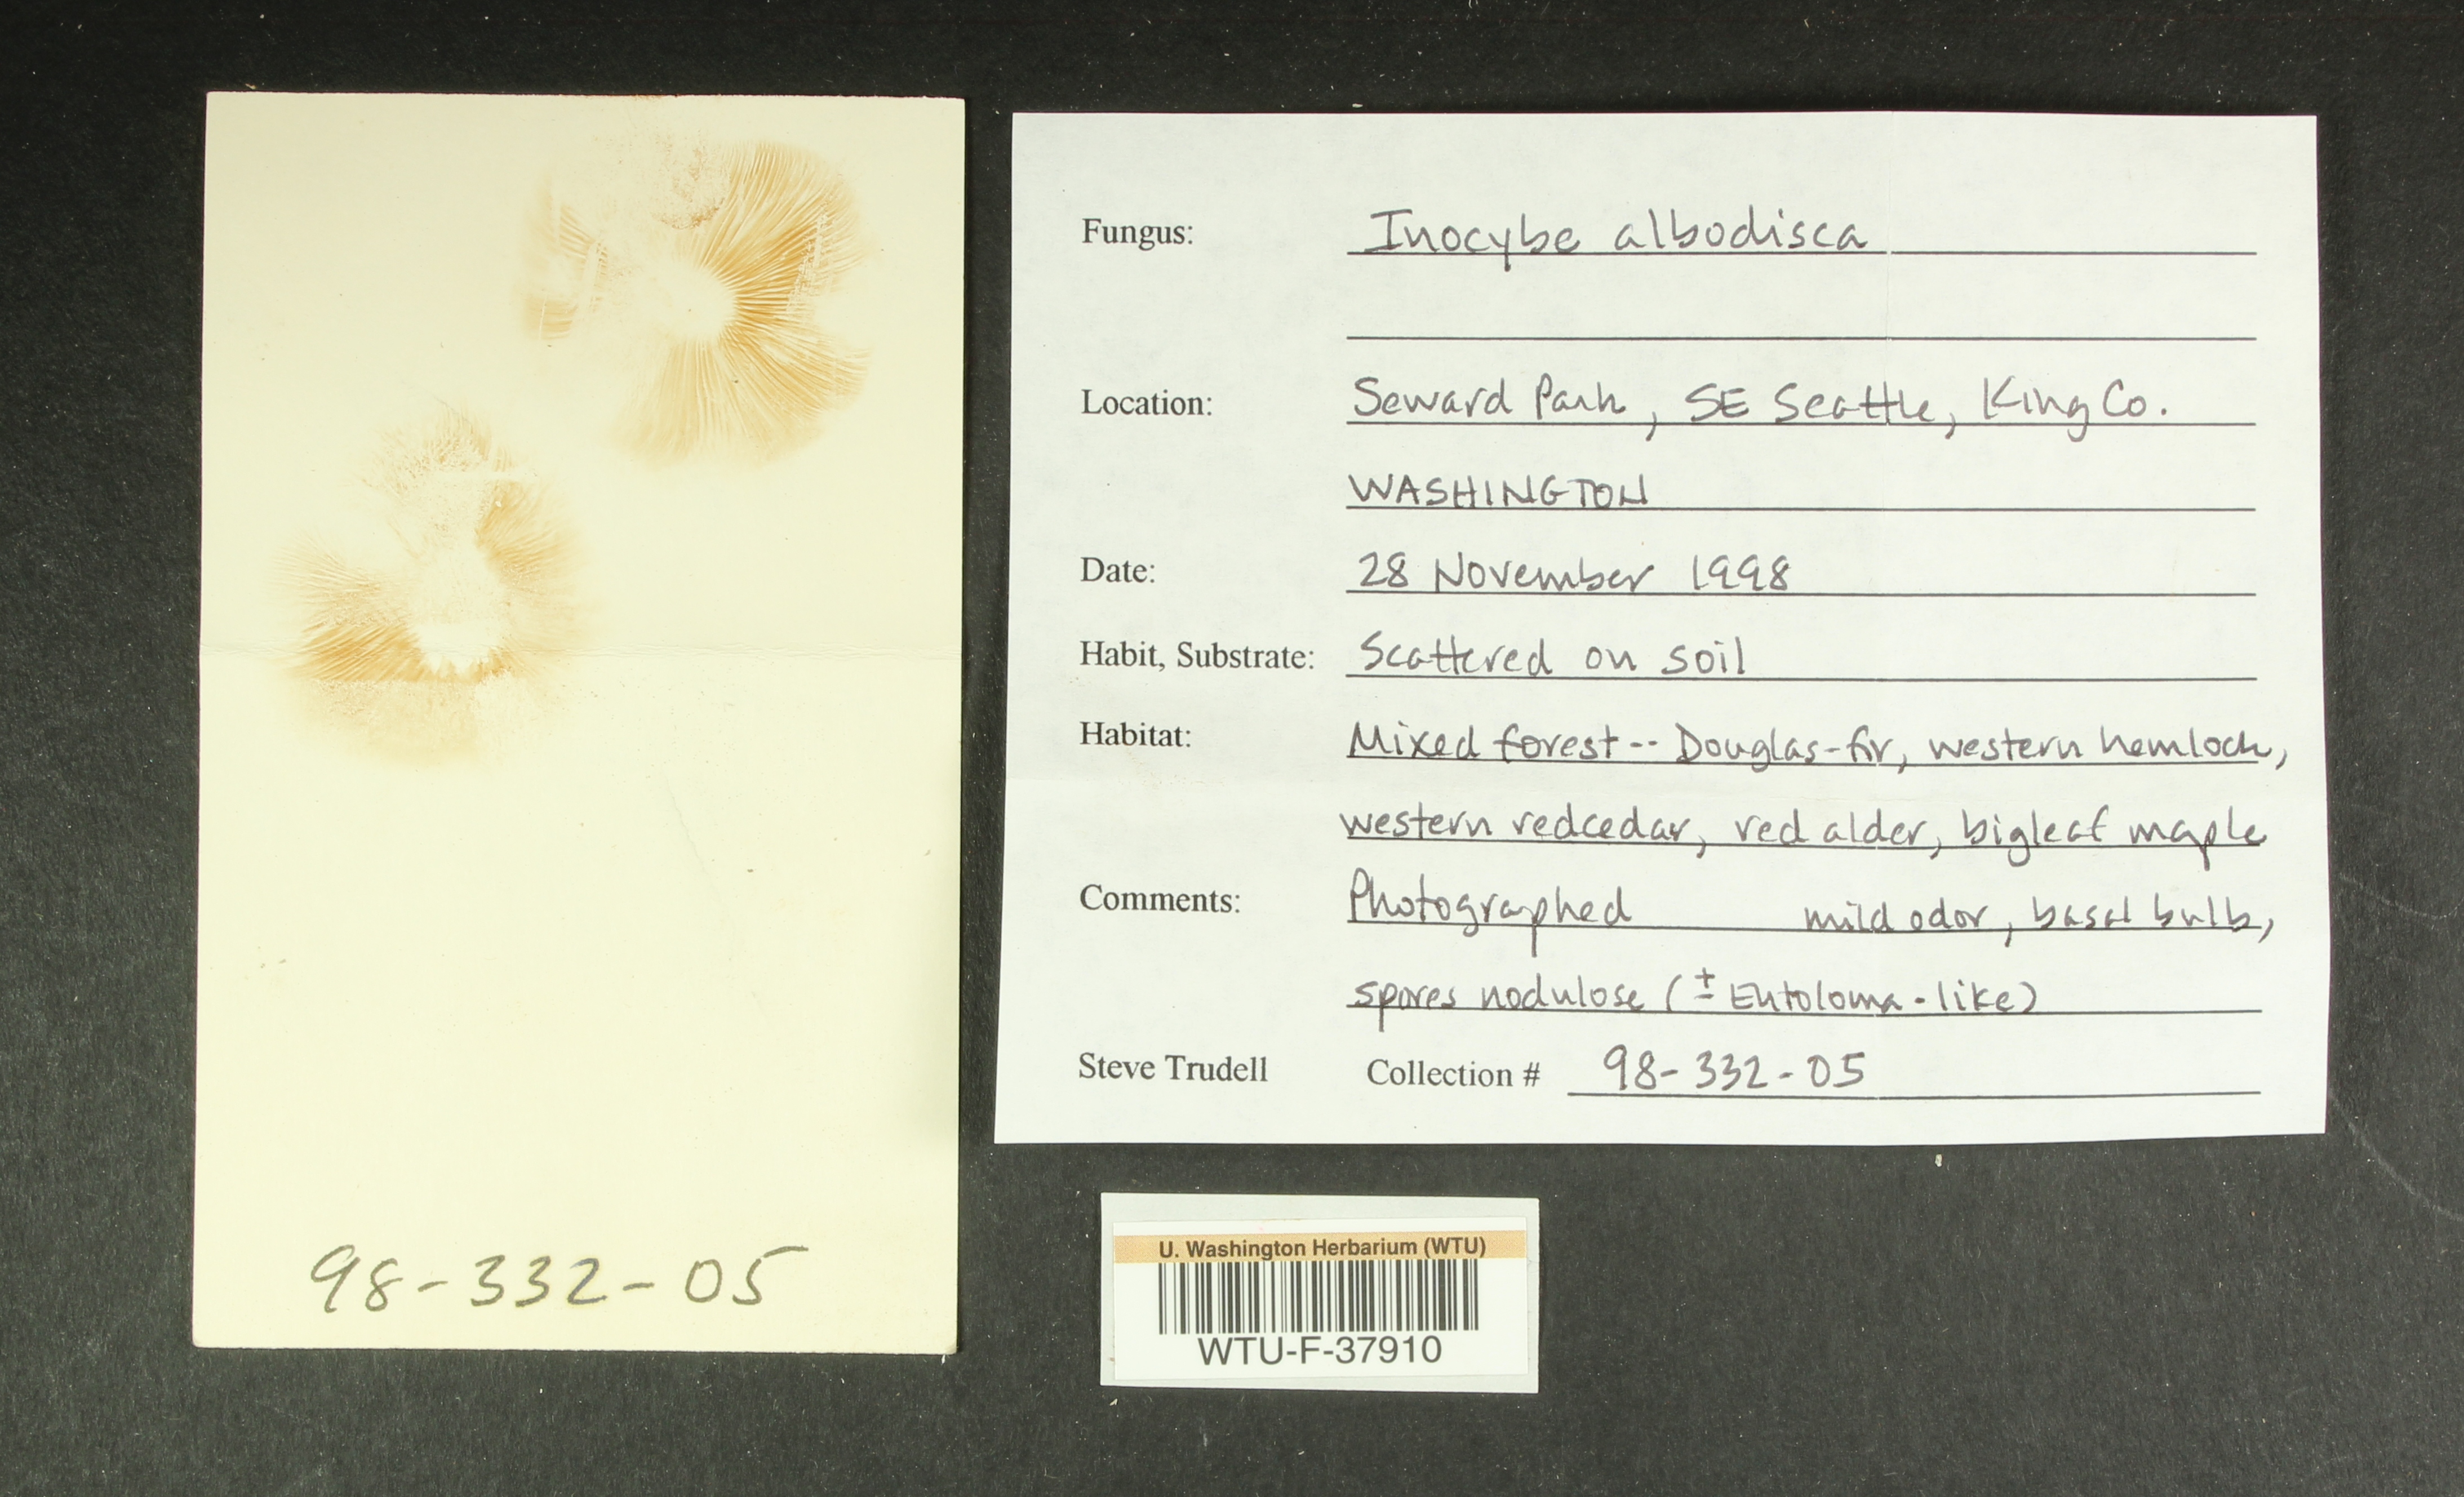 Fungus: Inocybe albodisca
Location: Seward Park, SE Seattle, King Co.
WASHINGTON
Date: 28 November 1998
Habit, Substrate: Scattered on soil
Habitat: Mixed forest -- Douglas-fir, western hemlock,
western redcedar, red alder, bigleaf maple
Comments: Photographed mild odor, basal bulb,
spores nodulose (± Entoloma-like)
Steve Trudell Collection # 98-332-05
98-332-05
U. Washington Herbarium (WTU)
WTU-F-37910